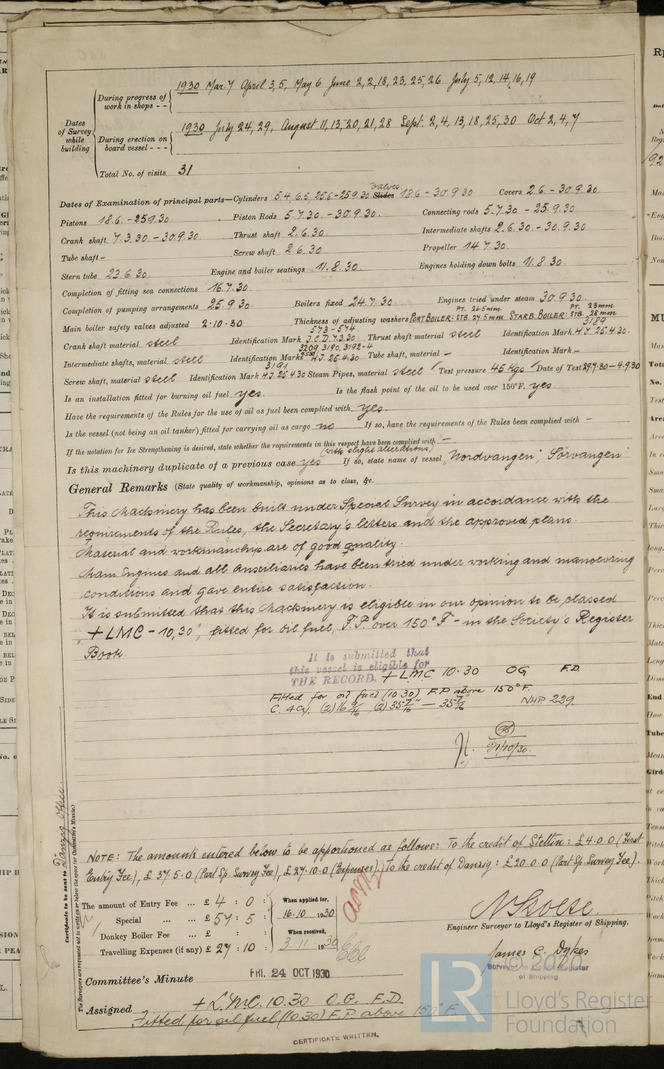 Dates of Survey while building
During progress of work in shops - - 1930 Mar. 7 April 3, 5, May 6 June 2, 2, 18, 23, 25, 26 July 5, 12, 14, 16, 19
During erection on board vessel - - - 1930 July 24, 29, August 11, 13, 20, 21, 28 Sept. 2, 4, 13, 18, 25, 30 Oct 2, 4, 7
Total No. of visits 31
Dates of Examination of principal parts—Cylinders 5.4, 6.5, 25.6-25.9.30 Slides valves 18.6-30.9.30 Covers 2.6-30.9.30
Pistons 18.6.-25.9.30 Piston Rods 5.7.30-30.9.30. Connecting rods 5.7.30-25.9.30
Crank shaft 7.3.30-30.9.30 Thrust shaft 2.6.30 Intermediate shafts 2.6.30-30.9.30.
Tube shaft - Screw shaft 2.6.30 Propeller 14.7.30
Stern tube 23.6.30 Engine and boiler seatings 11.8.30 Engines holding down bolts 11.8.30
Completion of fitting sea connections 16.7.30
Completion of pumping arrangements 25.9.30 Boilers fixed 24.7.30 Engines tried under steam 30.9.30
Main boiler safety valves adjusted 2.10.30 Thickness of adjusting washers PORT BOILER: PT. 26.5mm STB. 27.5mm STARB. BOILER: PT. 23mm STB. 28mm
Crank shaft material steel Identification Mark 573-574 J.C.D. 7.3.30 Thrust shaft material steel Identification Mark 3189 H.J. 25.4.30
Intermediate shafts, material steel Identification Marks 3209 3190, 3192-4 H.J. 25.4.30 Tube shaft, material - Identification Mark -
Screw shaft, material steel Identification Mark 3191 H.J. 25.4.30 Steam Pipes, material steel Test pressure 45 Kgs Date of Test 29.7.30-4.9.30
Is an installation fitted for burning oil fuel yes. Is the flash point of the oil to be used over 150°F. yes.
Have the requirements of the Rules for the use of oil as fuel been complied with yes.
Is the vessel (not being an oil tanker) fitted for carrying oil as cargo no If so, have the requirements of the Rules been complied with -
If the notation for Ice Strengthening is desired, state whether the requirements in this respect have been complied with -
Is this machinery duplicate of a previous case yes (with slight alterations) If so, state name of vessel "Nordvangen", "Sörvangen"
General Remarks (State quality of workmanship, opinions as to class, &c.
This Machinery has been built under Special Survey in accordance with the
requirements of the Rules, the Secretary's letters and the approved plans.
Material and workmanship are of good quality.
Main Engines and all Auxiliaries have been tried under working and manoevring
conditions and gave entire satisfaction.
It is submitted that this Machinery is eligible in our opinion to be classed
"+ LMC - 10,30", fitted for oil fuel, F.P. over 150°F - in the Society's Register
Book.
It is submitted that
this vessel is eligible for
THE RECORD. + LMC 10.30 OG F.D.
Fitted for oil fuel (10.30) F.P. above 150°F.
NHP 239
21/10/30.
NOTE: The amounts entered below to be apportioned as follows: To the credit of Stettin: £4.0.0 (First
Entry Fee), £37.5.0 (Part Sp. Survey Fee), £27.10.0 (Expenses). To the credit of Danzig: £20.0.0 (Part Sp. Survey Fee).
Certificate to be sent to Danzig Office.
The amount of Entry Fee ... £ 4 : 0 : When applied for,
Special ... ... £ 57 : 5 : 16.10.1930
Donkey Boiler Fee ... £ : : When received,
Travelling Expenses (if any) £ 27 : 10 : 3.11.1930
Engineer Surveyor to Lloyd's Register of Shipping.
James C. Dykes
Surveyor to Lloyd's Register
of Shipping
Committee's Minute FRI. 24 OCT 1930
Assigned + L.M.C. 10.30 O.G. F.D.
Fitted for oil fuel (10.30) F.P. above 150°F.
CERTIFICATE WRITTEN.
LR
© 2020
Lloyd's Register
Foundation